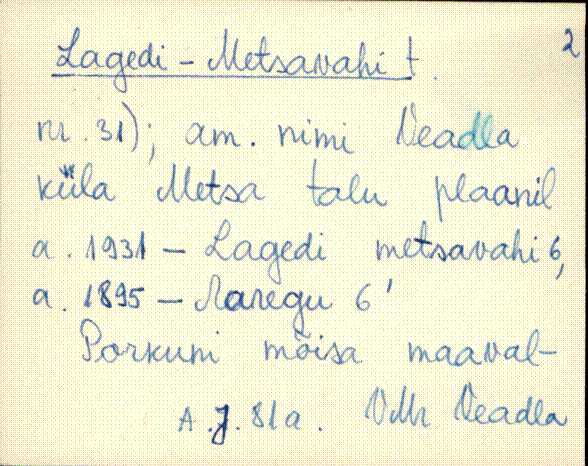 2
Lagedi - Metsavahi t.
nr. 31); am. nimi Veadla
küla Metsa talu plaanil
a. 1931 - Lagedi metsavahi 6,
a. 1895 - 6'
Porkuni mõisa maaval-
A.J. 81a. VMr Veadla